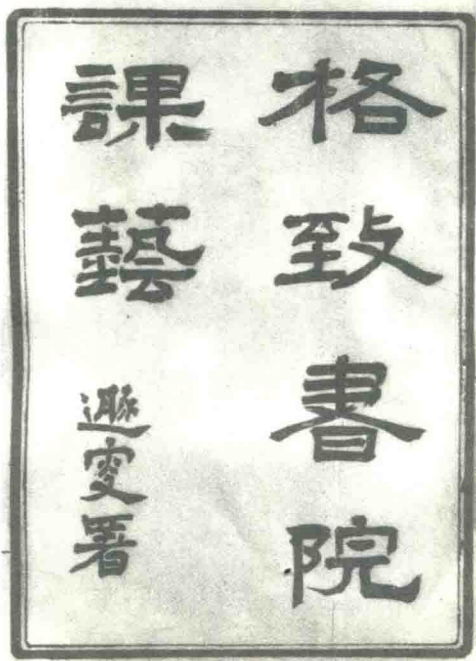 格致書院
課藝
遯叟署